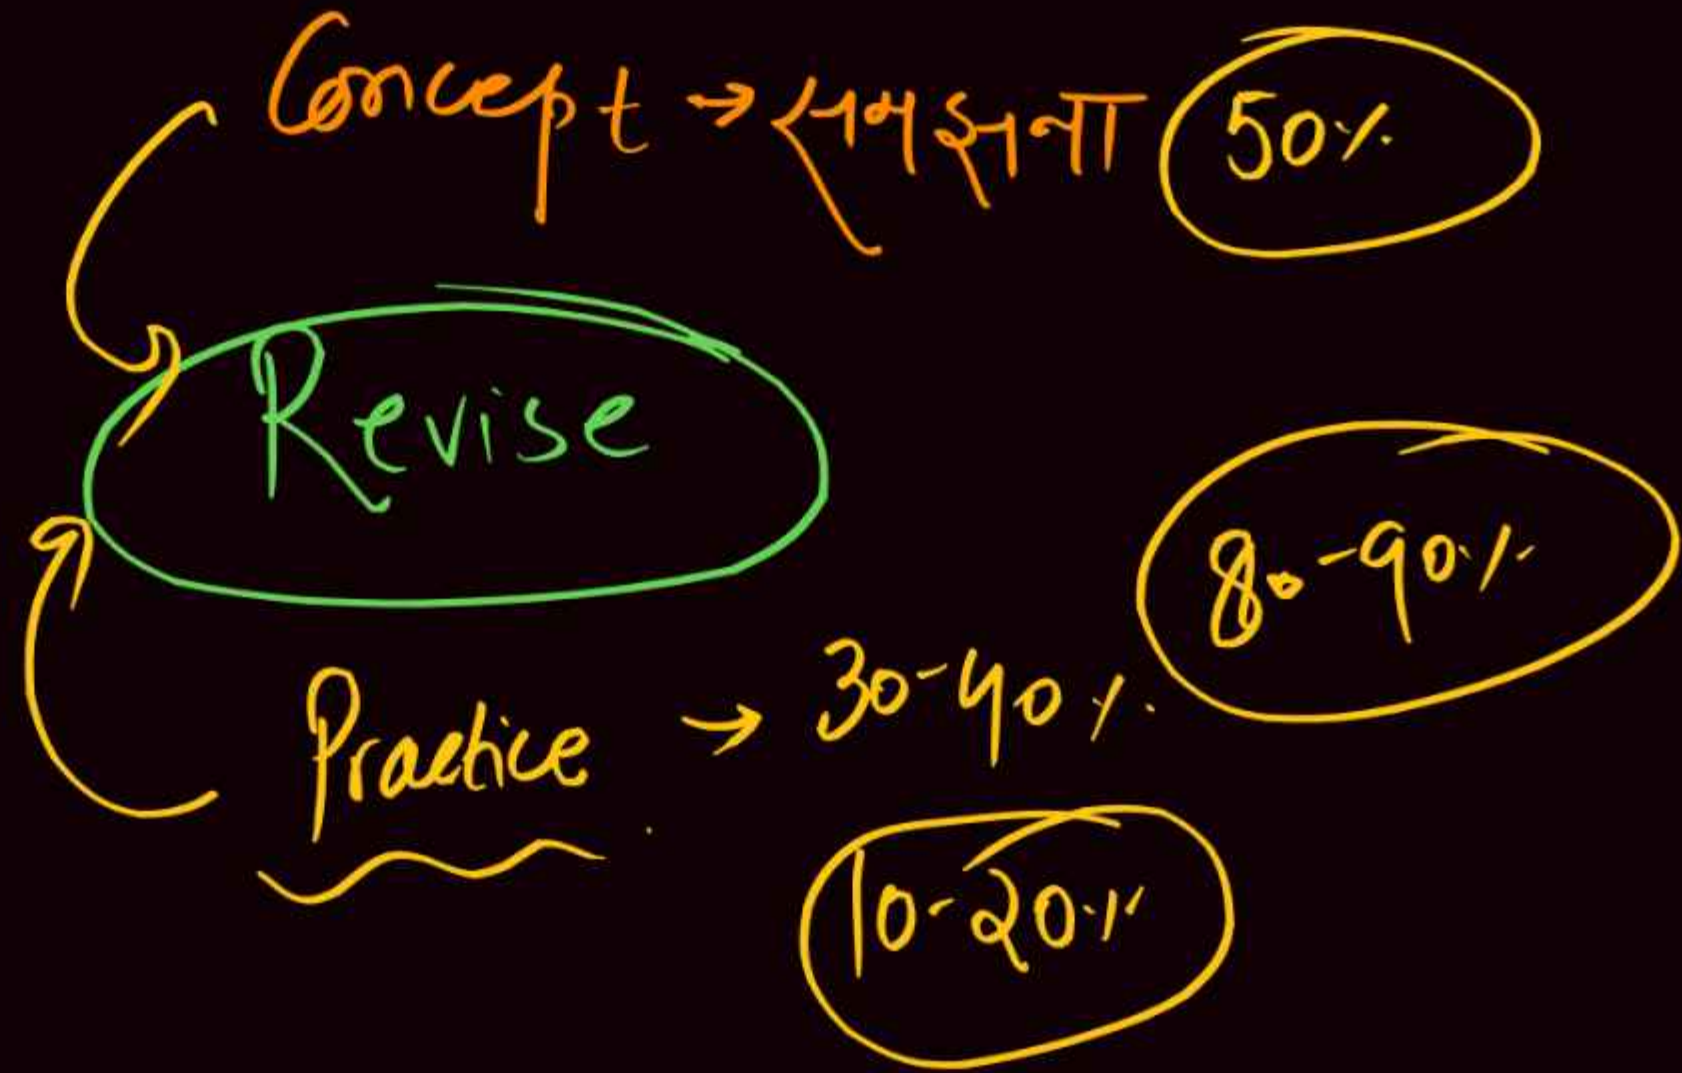 Concept → समझना 50%
Revise
80-90%
Practice → 30-40%
10-20%